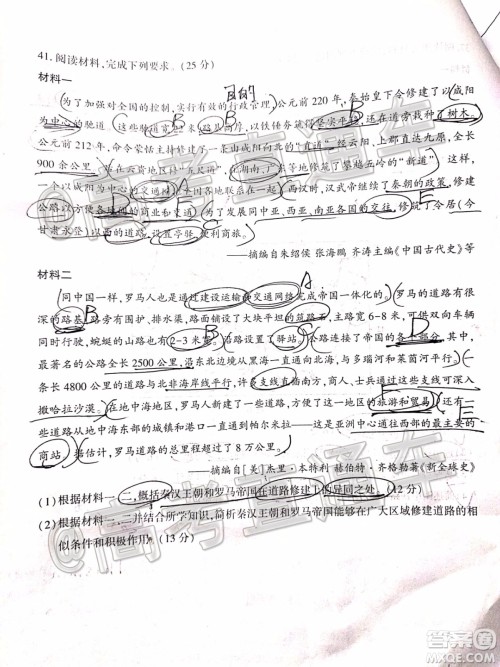 41. 阅读材料，完成下列要求。(25 分)
材料一
目的
为了加强对全国的控制，实行有效的行政管理 公元前 220 年，秦始皇下令修建了以咸阳
为中心的驰道。这些驰道 路 以铁 坚实平 ，还在道旁栽了树木。
元前 212 年，命令蒙恬主持修建了一条由咸阳向北的“直道”经云阳、上郡直达九原，全长
900 余公里。 在云贵地区修“五尺道”，在湖南、广东等地修筑攀越五岭的“新道”
一个以咸阳为中心的交通网 国各地联 西汉时，汉武帝继续了秦朝的政策，修建
公路以方便各 的商业和交通 为了发展同中亚、西亚、南亚各国的交往，修筑了令居（今
甘肃永登）以西的道路，设置亭驿，便利商旅。
——摘编自朱绍侯 张海鹏 齐涛主编《中国古代史》等
材料二
同中国一样，罗马人也是通过建设运输和交通网络完成帝国一体化的。罗马的道路有很
深的路基，路旁有围护、排水渠，路面铺设了大块平坦的筑路石。主要道路宽 6–8 米，可供双向车辆
同时行驶，蜿蜒的山路也有 2–3 米宽。 沿路设置了驿站，公路连接了帝国的各个部分，其
最著名的公路全长 2500 公里，沿东北边境从黑海一直通向北海，与多瑙河和莱茵河平行。一
条长 4800 公里的道路与北非海岸线平行，许多支线直指南方，商人、士兵通过这些支线可深入
撒哈拉沙漠。在地中海东部， 方便了帝国的旅游和贸易，还有一
些公路从地中海东部的城镇和港口一直通向帕尔米拉——这是亚洲中心通往西部的主要
商站。据估计，罗马道路超过了 8 万公里。
——摘编自［美］杰里·本特利 赫伯特·齐格勒著《新全球史》
(1) 根据材料一、二，概括秦汉王朝和罗马帝国在道路修建上的异同之处。(12 分)
(2) 根据材料一、二并结合所学知识，简析秦汉王朝和罗马帝国能够在广大区域修建道路的相
似条件和积极作用。(13 分)
高考直通车
高考直通车
答案圈
MXQE.COM